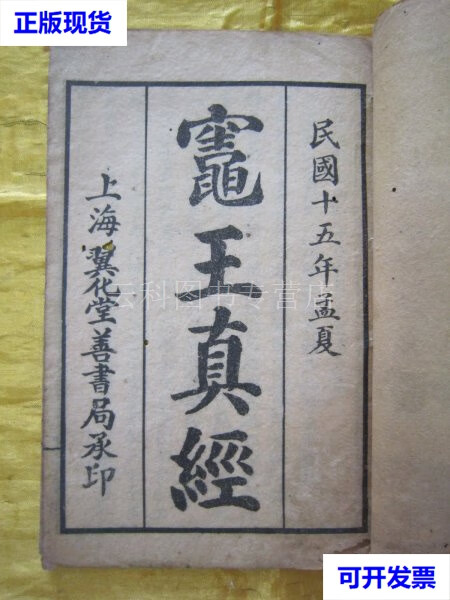 正版现货
民國十五年孟夏
竈王真經
上海翼化堂善書局承印
云科图书专营店
可开发票